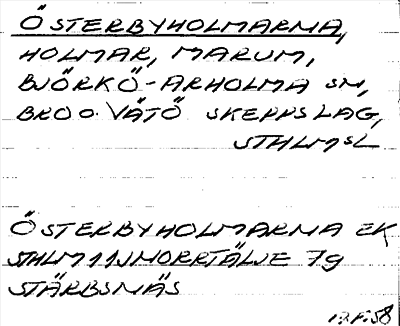 ÖSTERBYHOLMARMA,
HOLMAR, MARUM,
BJÖRKÖ-ARHOLMA SN,
BRO O. VÄTÖ SKEPPSLAG,
STHLMSL
ÖSTERBYHOLMARMA EK
STHLM 11J NORRTÄLJE 7g
STÄRBSNÄS